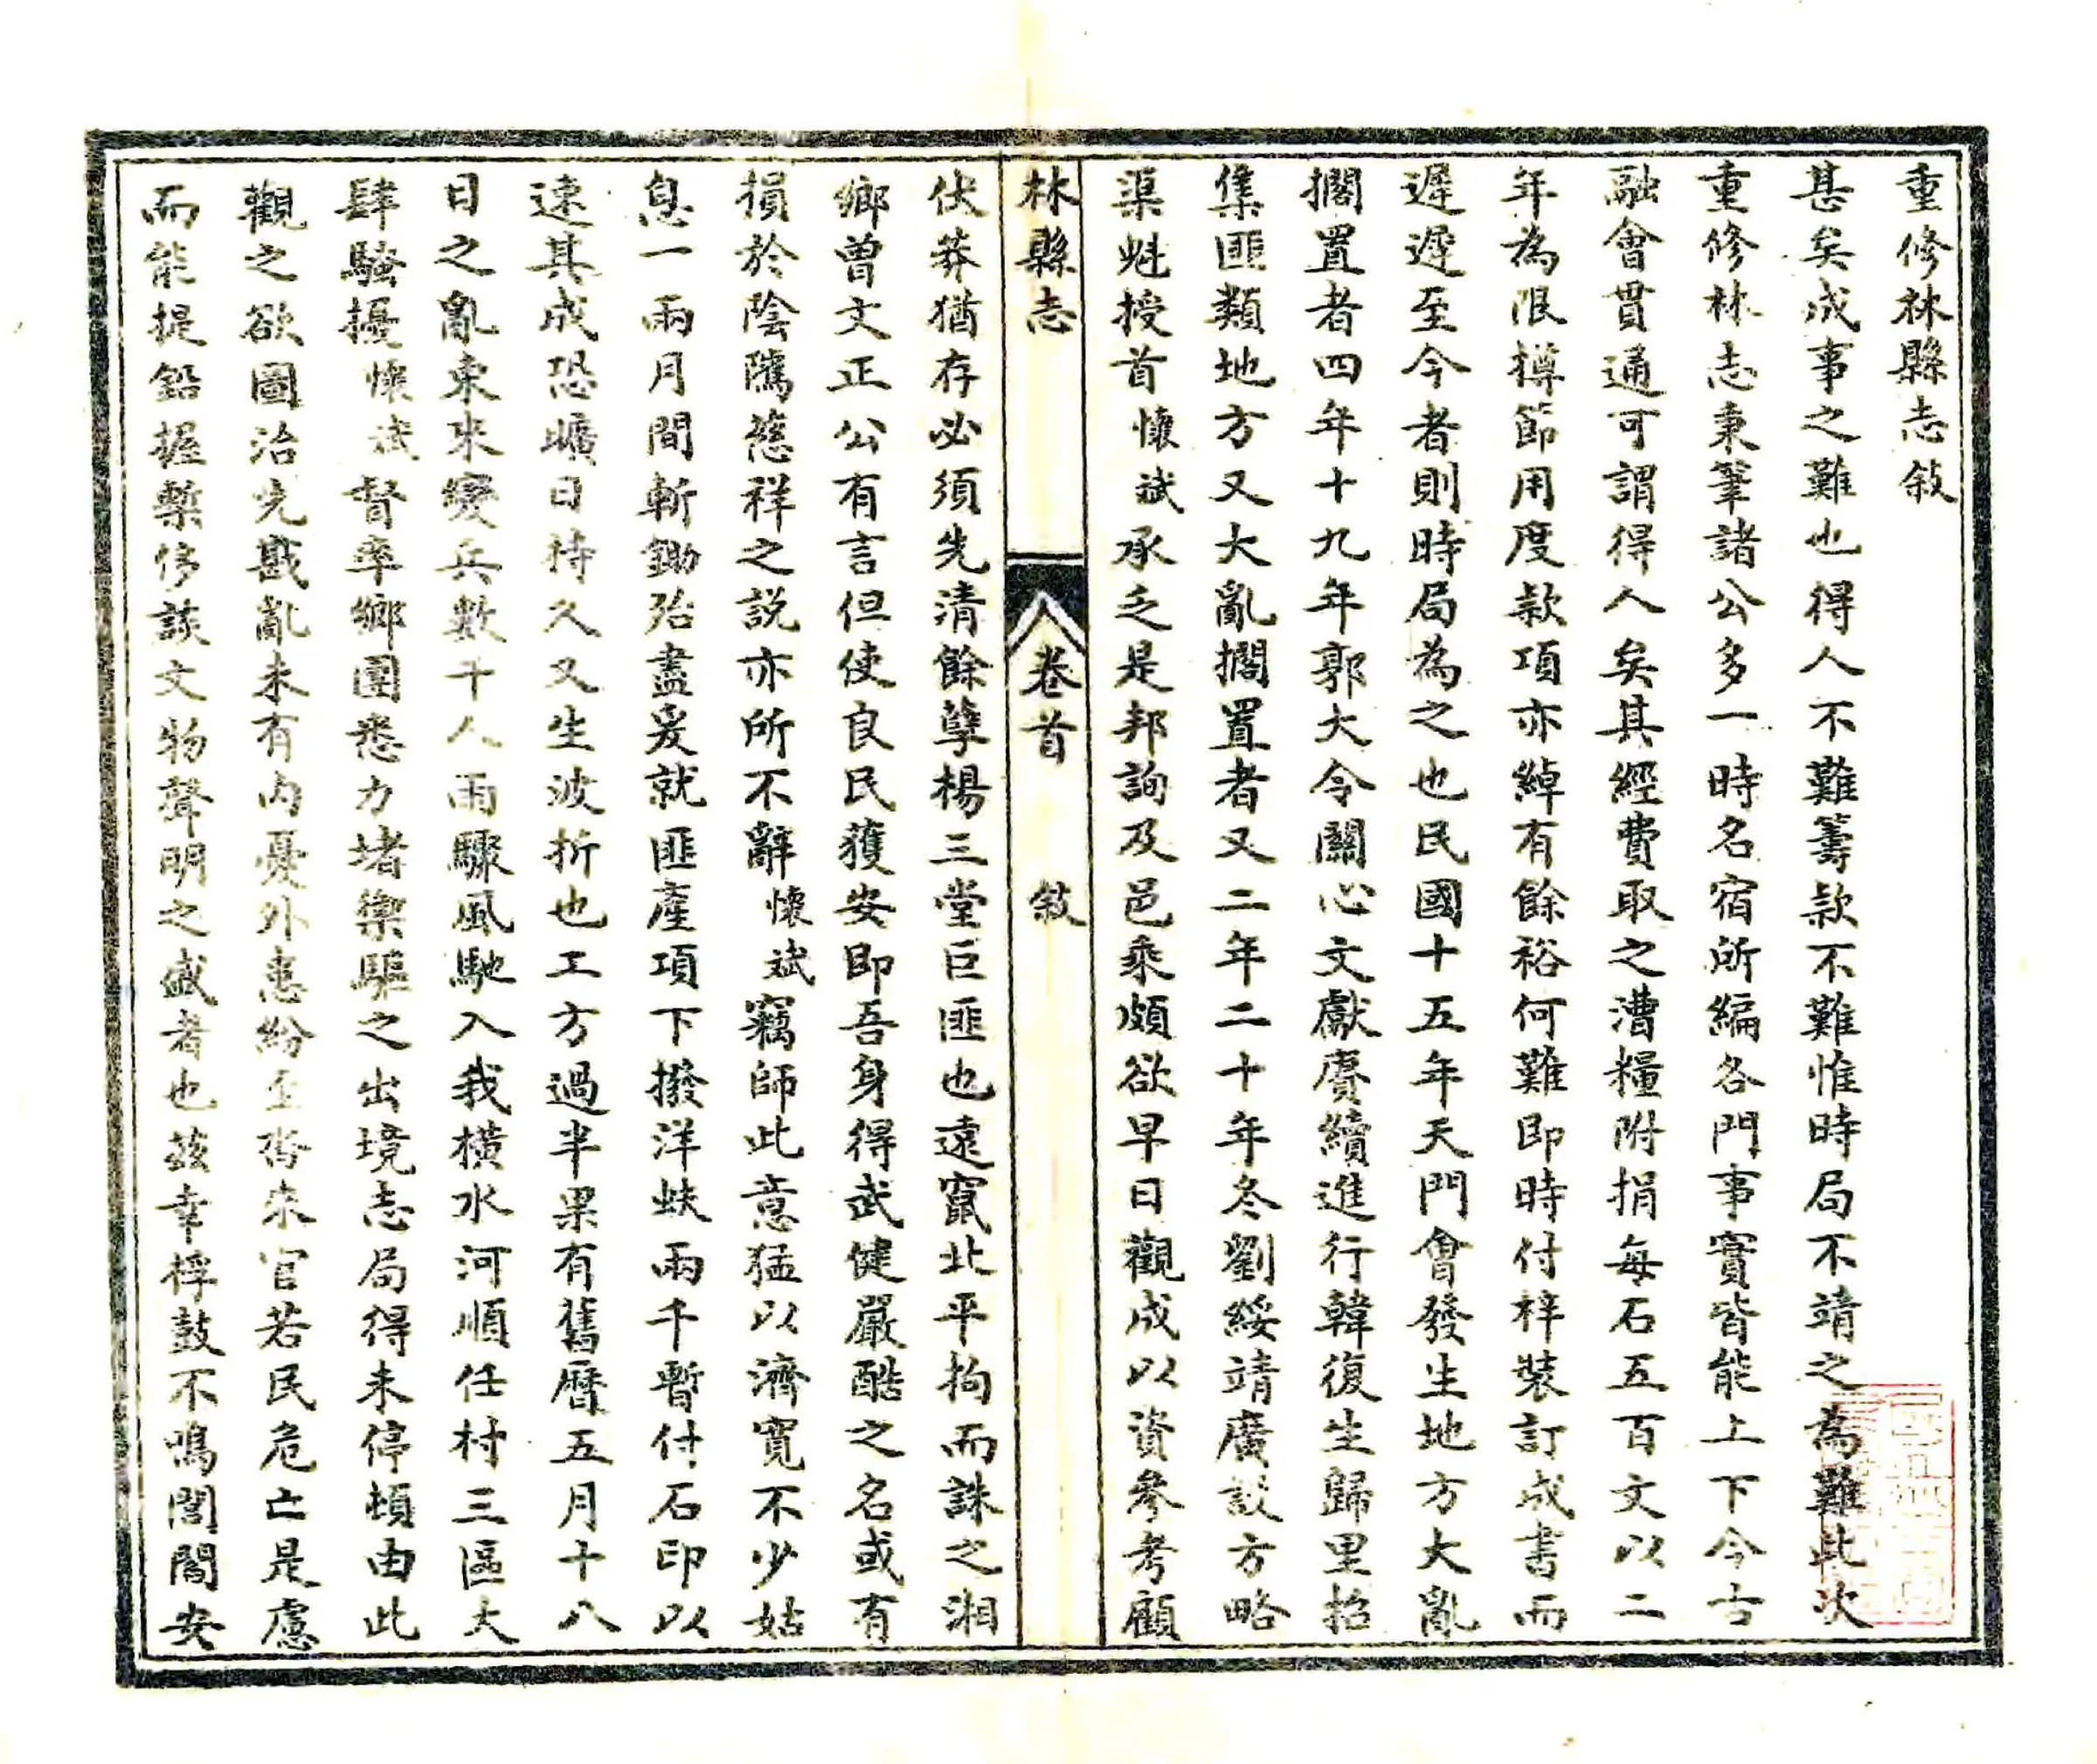 重修林縣志敘
甚矣成事之難也得人不難籌款不難惟時局不靖之為難此次
重修林志秉筆諸公多一時名宿所編各門事實皆能上下今古
融會貫通可謂得人矣其經費取之漕糧附捐每石五百文以二
年為限撙節用度款項亦綽有餘裕何難即時付梓裝訂成書而
遲遲至今者則時局為之也民國十五年天門會發生地方大亂
擱置者四年十九年郭大令關心文獻賡續進行韓復生歸里招
集匪類地方又大亂擱置者又二年二十年冬劉綏靖廣設方略
渠魁授首懷斌承乏是邦詢及邑乘頗欲早日觀成以資參考顧
林縣志
卷首
敘
伏莽猶存必須先清餘孽楊三堂巨匪也遠竄北平拘而誅之湘
鄉曾文正公有言但使良民獲安即吾身得武健嚴酷之名或有
損於陰騭慈祥之說亦所不辭懷斌竊師此意猛以濟寬不少姑
息一兩月間斬鋤殆盡爰就匪產項下撥洋蚨兩千暫付石印以
速其成恐曠日持久又生波折也工方過半果有舊曆五月十八
日之亂東來變兵數千人雨驟風馳入我橫水河順任村三區大
肆騷擾懷斌督率鄉團悉力堵禦驅之出境志局得未停頓由此
觀之欲圖治先戡亂未有內憂外患紛至沓來官若民危亡是慮
而能提鉛握槧侈談文物聲明之盛者也茲幸桴鼓不鳴閭閻安